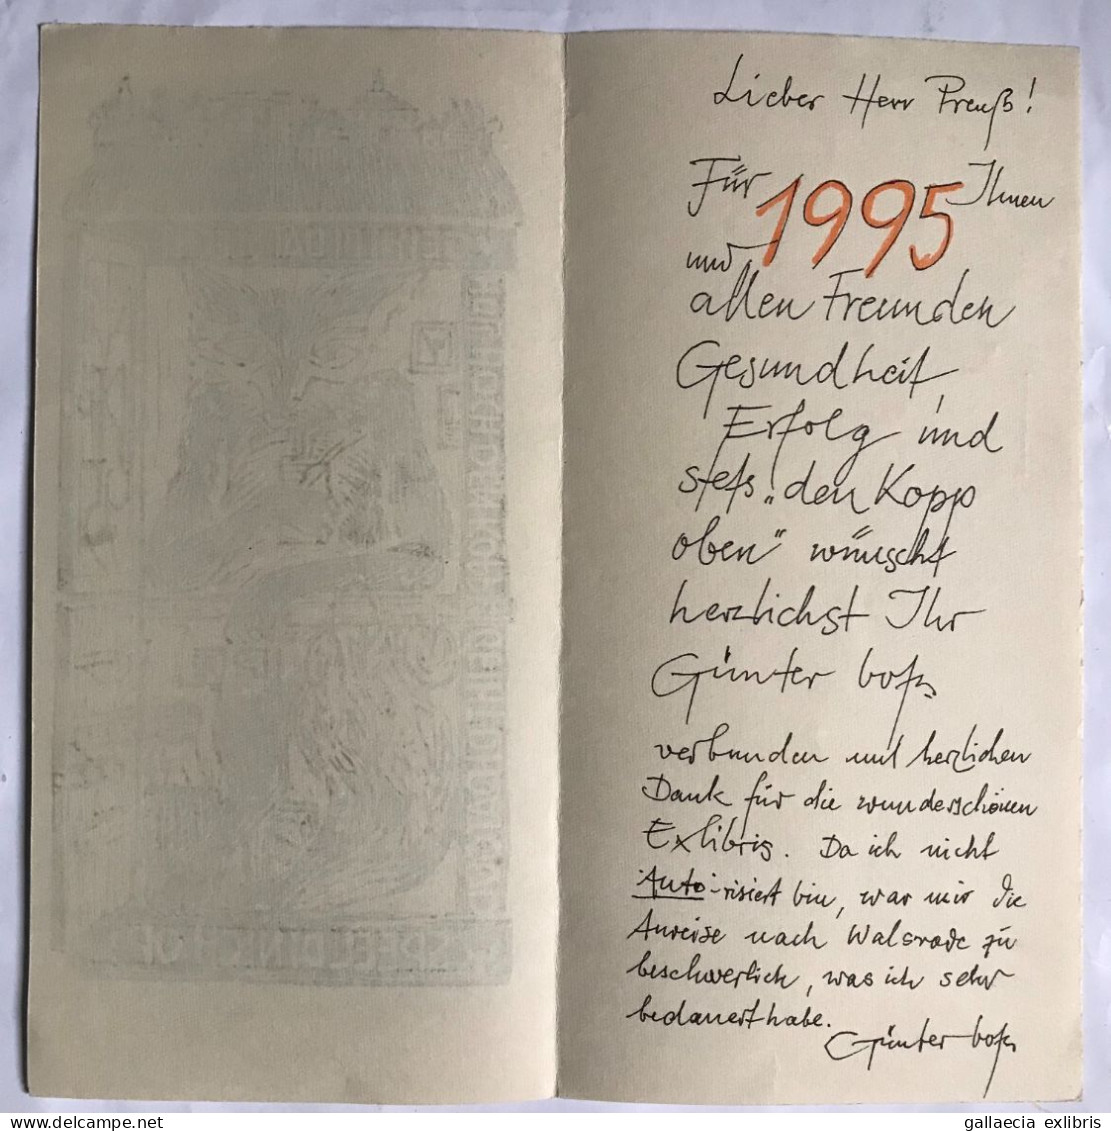 Lieber Herr Preuß!
Für 1995 Ihnen
und
allen Freunden
Gesundheit,
Erfolg und
stets „den Kopp
oben" wünscht
herzlichst Ihr
Günter
verbunden mit herzlichen
Dank für die wunderschönen
Exlibris. Da ich nicht
"Auto"-risiert bin, war mir die
Anreise nach Walsrode zu
beschwerlich, was ich sehr
bedauert habe.
Günter
gallaecia exlibris